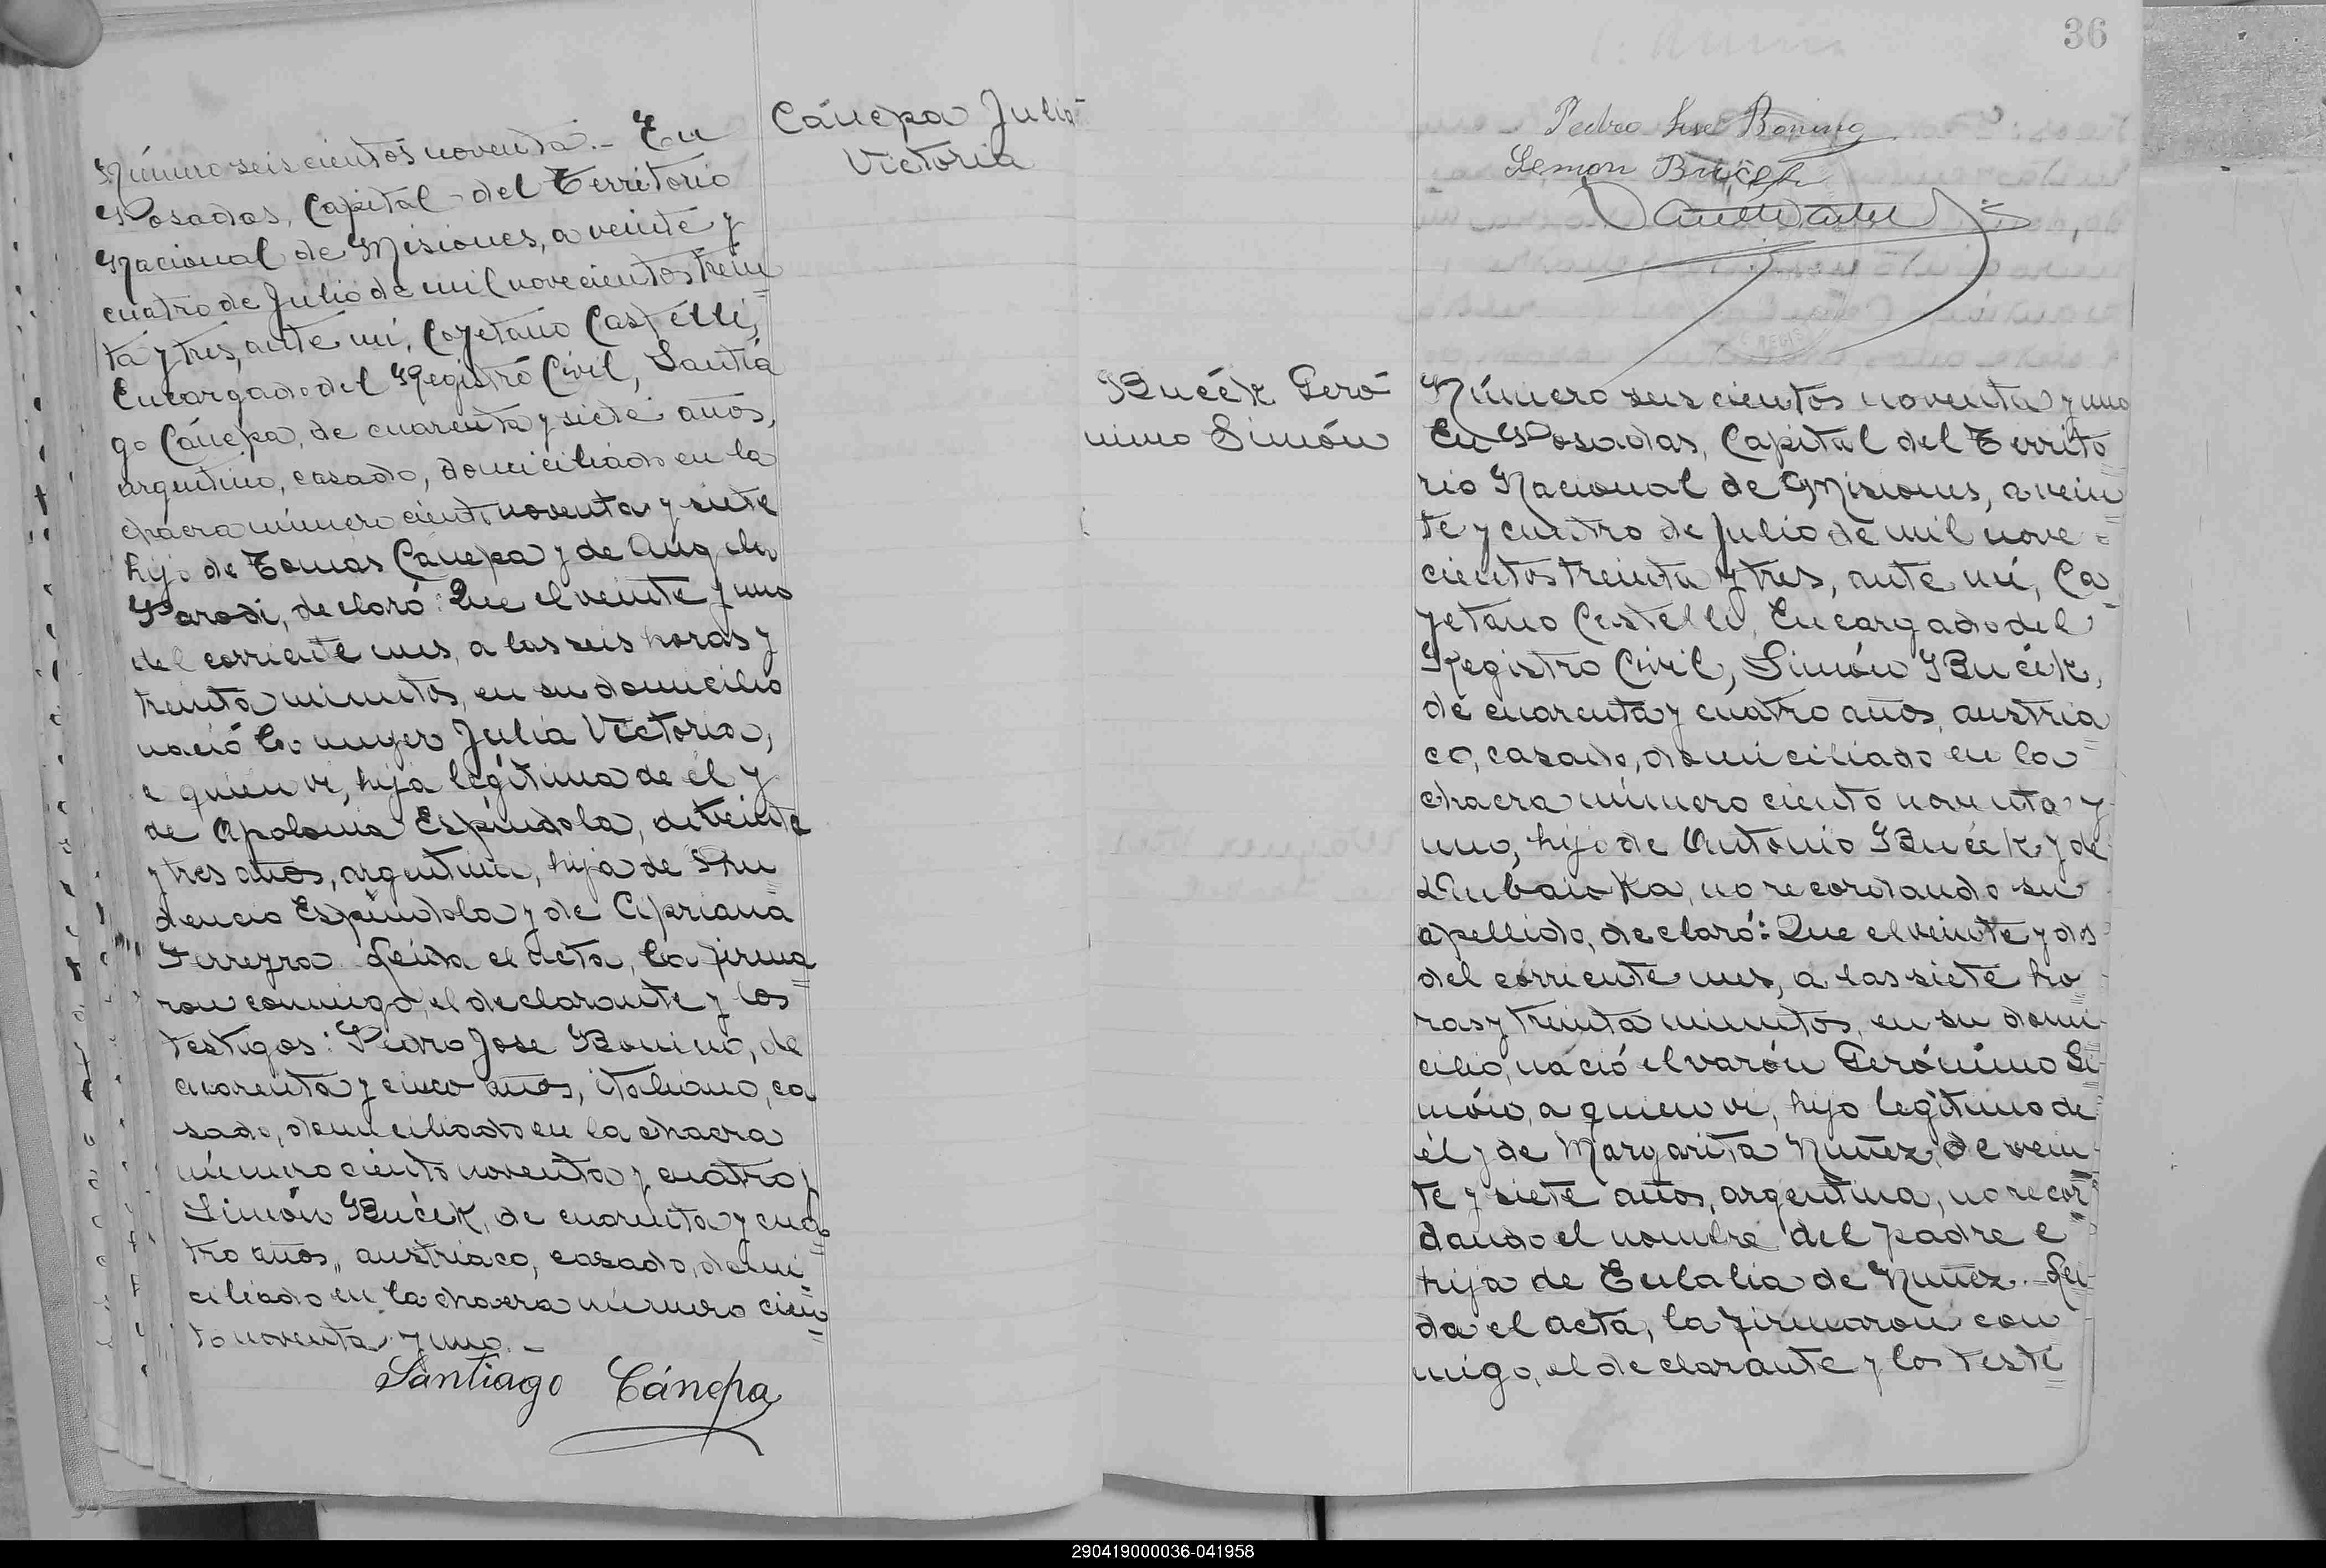 Número seis cientos noventa.- En
Posadas, Capital del Territorio
Nacional de Misiones, a veinte y
cuatro de Julio de mil novecientos trein
ta y tres, ante mí, Cayetano Castelli,
Encargado del Registro Civil, Santia
go Cánepa, de cuarenta y siete años,
argentino, casado, domiciliado en la
chacra número ciento noventa y siete
hijo de Tomas Cánepa y de Angela
Parodi, declaró: Que el veinte y uno
del corriente mes, a las seis horas y
treinta minutos, en su domicilio
nació la mujer Julia Victoria,
a quien vi, hija legítima de él y
de Apolonia Espíndola, de treinta
y tres años, argentina, hija de Pru
dencio Espíndola y de Cipriana
Ferreyra. Leida el acta, la firma
ron conmigo, el declarante y los
testigos: Pedro Jose Bonino, de
cuarenta y cinco años, italiano, ca
sado, domiciliado en la chacra
número ciento noventa y cuatro y
Simón Bucék, de cuarenta y cua
tro años, austriaco, casado, domi
ciliado en la chacra número cien
to noventa y uno.-
Santiago Cánepa
Cánepa Julia
Victoria
36
Pedro Jose Bonino
Semon Bucek
REGIS
Bucék Geró
nimo Simón
Número seis cientos noventa y uno
En Posadas, Capital del Territo
rio Nacional de Misiones, a vein
te y cuatro de Julio de mil nove
cientos treinta y tres, ante mí, Ca
yetano Castelli, Encargado del
Registro Civil, Simón Bucék,
de cuarenta y cuatro años, austria
co, casado, domiciliado en la
chacra número ciento noventa y
uno, hijo de Antonio Bucék y de
no recordando su
apellido, declaró: Que el veinte y dos
del corriente mes, a las siete ho
ras y treinta minutos, en su domi
cilio, nació el varón Gerónimo Si
món, a quien vi, hijo legítimo de
él y de Margarita Nuñez, de vein
te y siete años, argentina, no recor
dando el nombre del padre e
hija de Eulalia de Nuñez. Lei
da el acta, la firmaron con
migo, el declarante y los testi
290419000036-041958